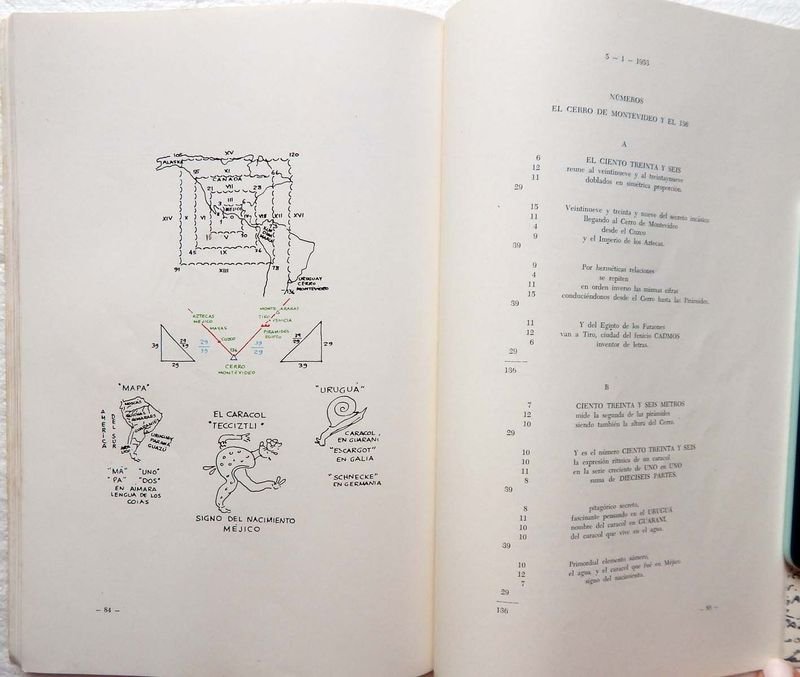 105
XV
120
ALASKA
55
XI
66
CANADA
21
VII
28
III
3
6
MÉJICO
1
0
XIV
X
VI
VIII
XII
XVI
15
V
10
45
IX
36
91
XIII
78
URUGUAY
CERRO
MONTEVIDEO
136
MONTE ARARAS
AZTECAS
MÉJICO
TIRO
FENICIA
MAYAS
PIRAMIDES
EGIPTO
CUZCO
39
29
39
29
29
39
136
39
29
29
39
29
39
CERRO
MONTEVIDEO
"MAPA"
AMERICA
DEL SUR
URUGUAY
PARANÁ
GUAZÚ
"MÁ" "UNO"
"PA" "DOS"
EN AIMARA
LENGUA DE LOS
COIAS
EL CARACOL
"TECCIZTLI"
SIGNO DEL NACIMIENTO
MÉJICO
"URUGUÁ"
CARACOL,
EN GUARANI
"ESCARGOT"
EN GALIA
"SCHNECKE"
EN GERMANIA
– 84 –
5 – 1 – 1953
NÚMEROS
EL CERRO DE MONTEVIDEO Y EL 136
A
6 EL CIENTO TREINTA Y SEIS
12 reune al veintinueve y al treintaynueve
11 doblados en simétrica proporción.
29
15 Veintinueve y treinta y nueve del secreto incásico
11 llegando al Cerro de Montevideo
4 desde el Cuzco
9 y el Imperio de los Aztecas.
39
9 Por herméticas relaciones
4 se repiten
11 en orden inverso las mismas cifras
15 conduciéndonos desde el Cerro hasta las Pirámides.
39
11 Y del Egipto de los Faraones
12 van a Tiro, ciudad del fenicio CADMOS
6 inventor de letras.
29
136
B
7 CIENTO TREINTA Y SEIS METROS
12 mide la segunda de las pirámides
10 siendo también la altura del Cerro.
29
10 Y es el número CIENTO TREINTA Y SEIS
10 la expresión rítmica de un caracol
11 en la serie creciente de UNO en UNO
8 suma de DIECISEIS PARTES.
39
8 pitagórico secreto,
11 fascinante pensando en el URUGUÁ
10 nombre del caracol en GUARANI,
10 del caracol que vive en el agua.
39
10 Primordial elemento número,
12 el agua, y el caracol que fué en Méjico
7 signo del nacimiento.
29
136
– 85 –